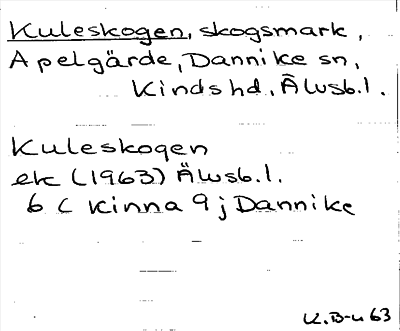 Kuleskogen, skogsmark,
Apelgärde, Dannike sn,
Kinds hd, Älvsb.l.
Kuleskogen
ek (1963) Älvsb.l.
6 C Kinna 9 j Dannike
K.B-u 63